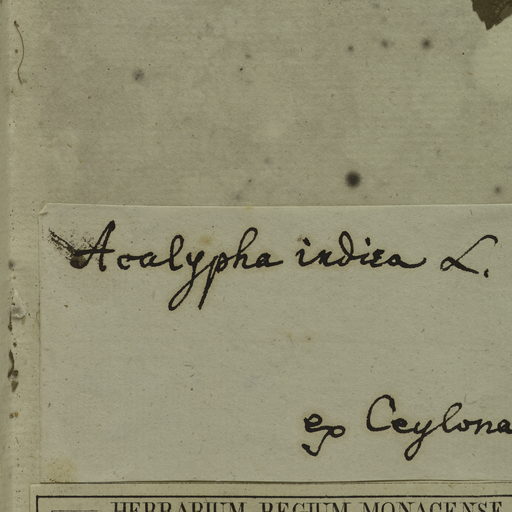 Acalypha indica L.
ex Ceylona
HERBARIUM REGIUM MONACENSE